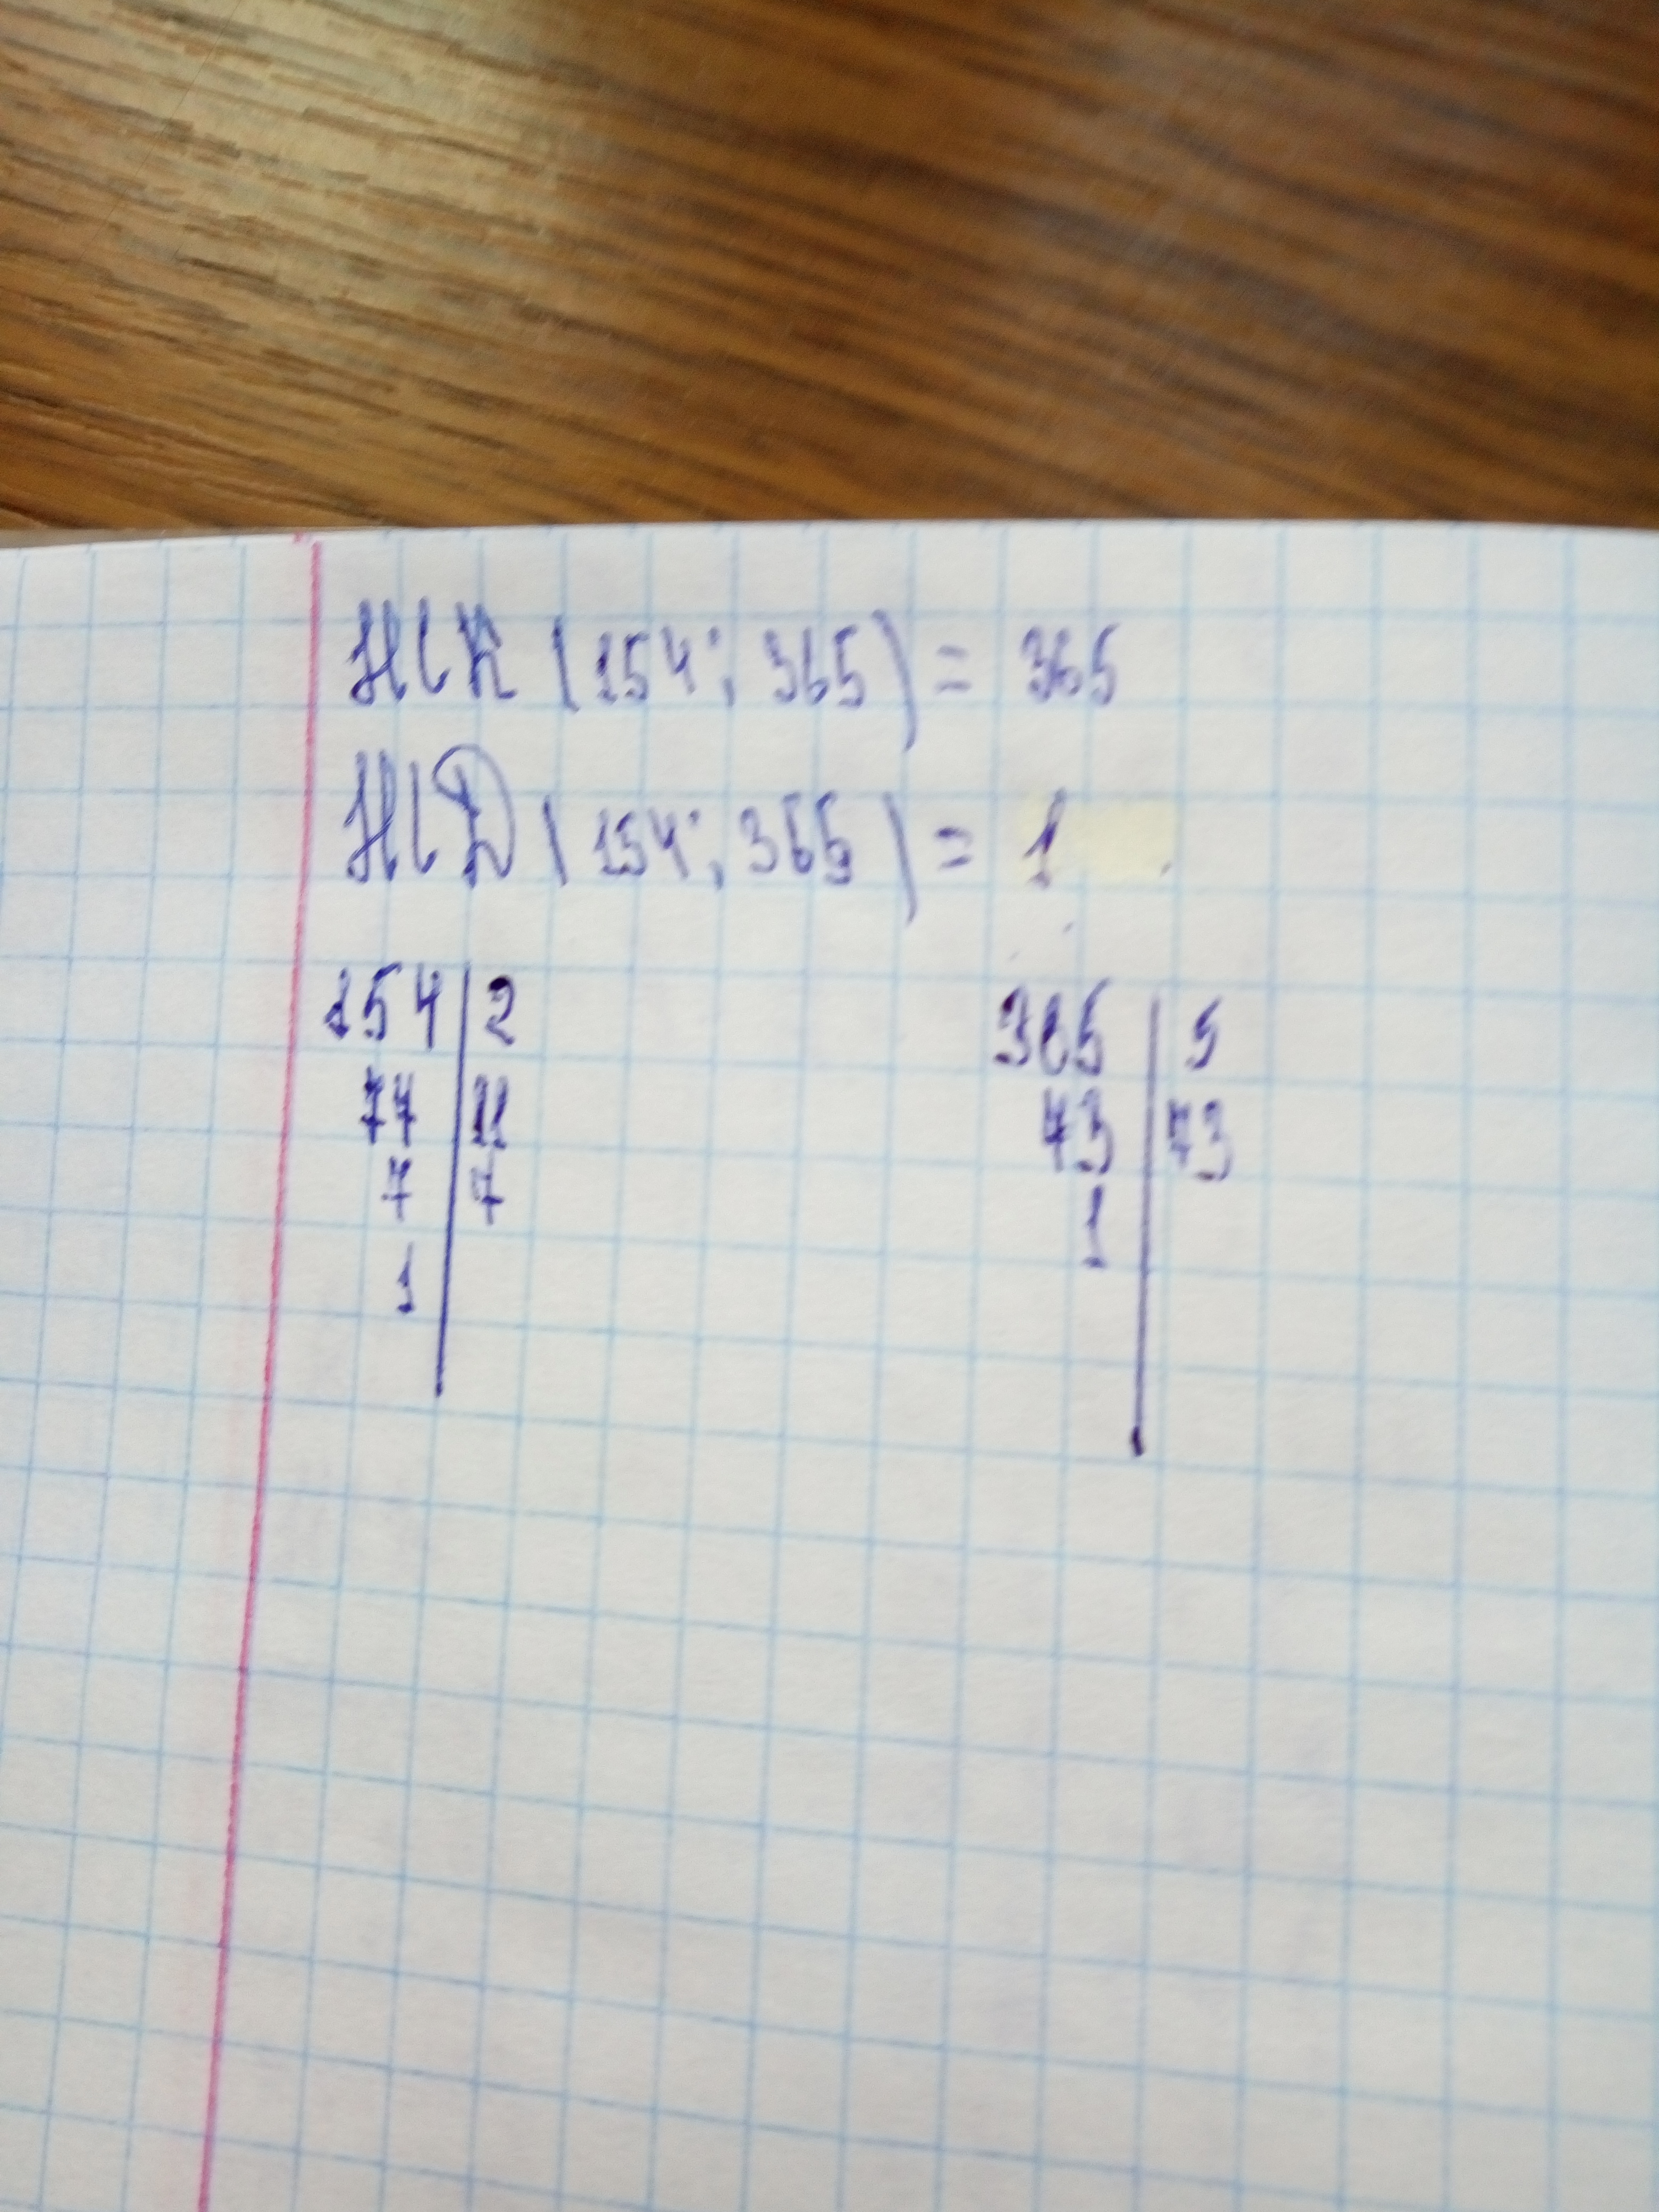 НСК (154; 365) = 365
НСД (154; 365) = 1
154 | 2
77 | 11
7 | 7
1
365 | 5
73 | 73
1